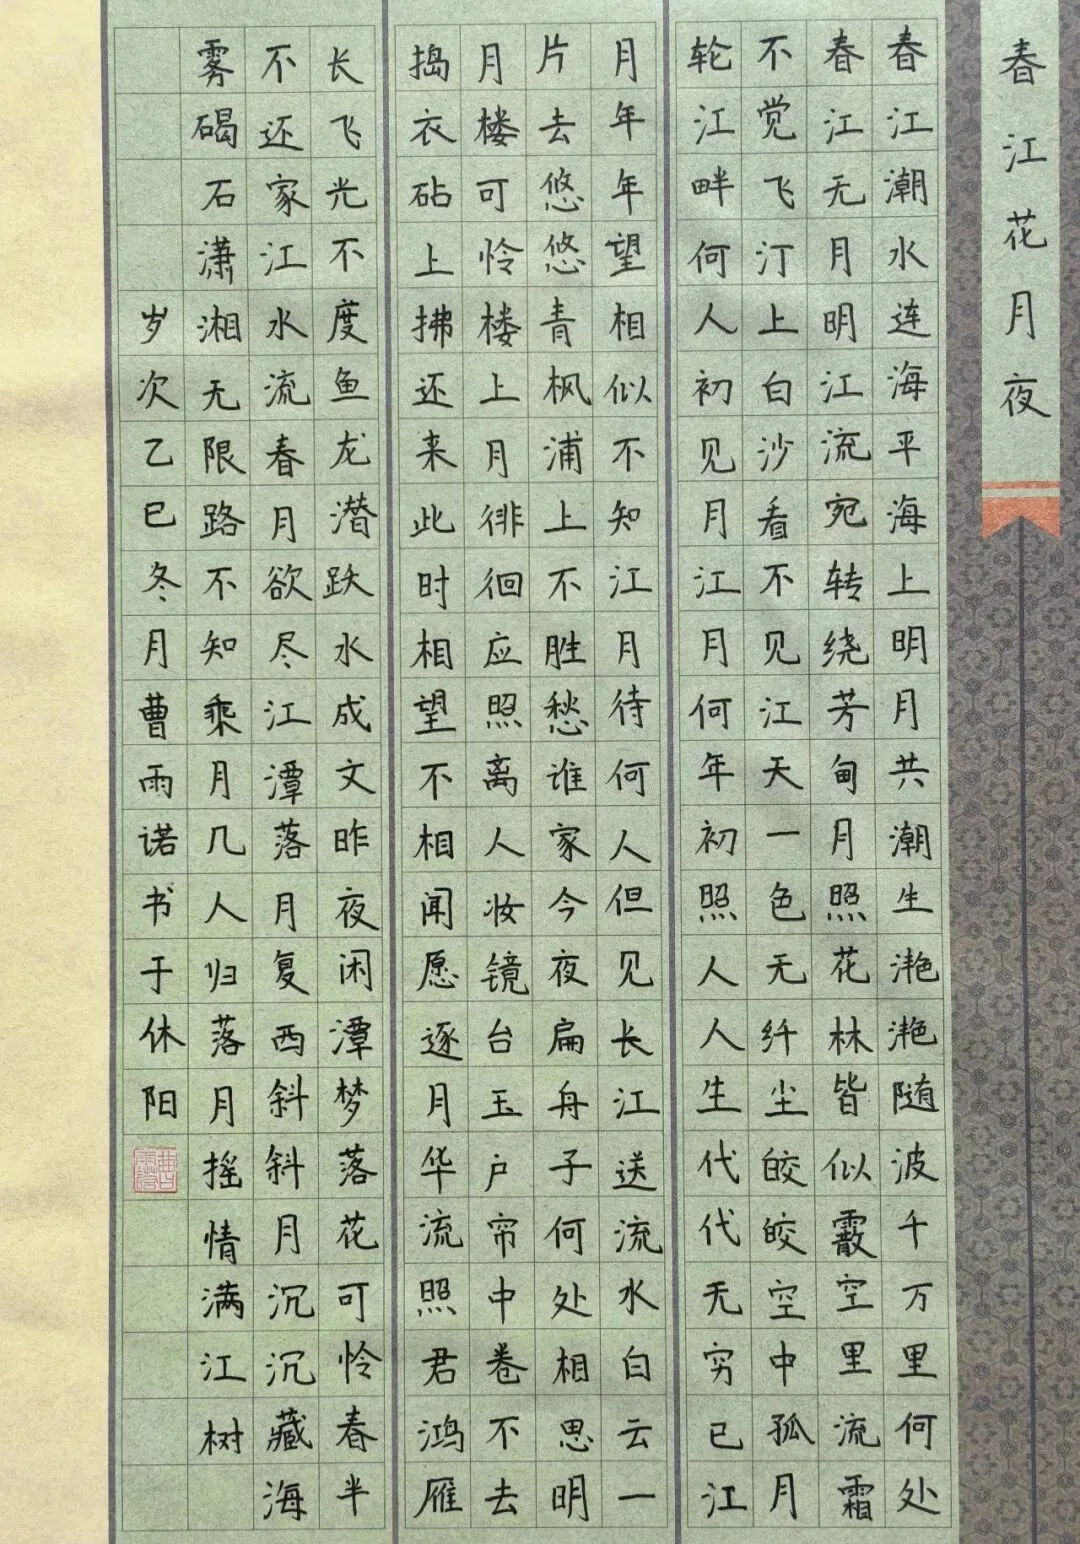 春江花月夜
春江潮水连海平海上明月共潮生滟滟随波千万里何处
春江无月明江流宛转绕芳甸月照花林皆似霰空里流霜
不觉飞汀上白沙看不见江天一色无纤尘皎皎空中孤月
轮江畔何人初见月江月何年初照人人生代代无穷已江
月年年望相似不知江月待何人但见长江送流水白云一
片去悠悠青枫浦上不胜愁谁家今夜扁舟子何处相思明
月楼可怜楼上月徘徊应照离人妆镜台玉户帘中卷不去
捣衣砧上拂还来此时相望不相闻愿逐月华流照君鸿雁
长飞光不度鱼龙潜跃水成文昨夜闲潭梦落花可怜春半
不还家江水流春月欲尽江潭落月复西斜斜月沉沉藏海
雾碣石潇湘无限路不知乘月几人归落月摇情满江树
岁次乙巳冬月曹雨诺书于休阳